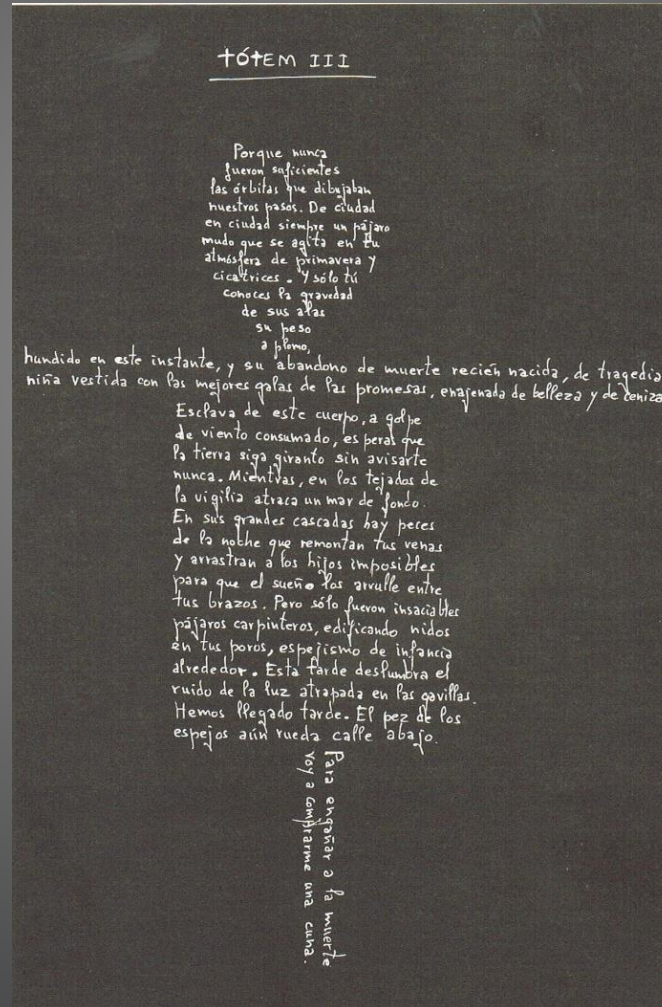 TÓTEM III
Porque nunca
fueron suficientes
las órbitas que dibujaban
nuestros pasos. De ciudad
en ciudad siempre un pájaro
mudo que se agita en tu
atmósfera de primavera y
cicatrices. Y sólo tú
conoces la gravedad
de sus alas
su peso
a plomo,
hundido en este instante, y su abandono de muerte recién nacida, de tragedia
niña vestida con las mejores galas de las promesas, enajenada de belleza y de ceniza
Esclava de este cuerpo, a golpe
de viento consumado, esperas que
la tierra siga giranto sin avisarte
nunca. Mientras, en los tejados de
la vigilia atraca un mar de fondo.
En sus grandes cascadas hay peces
de la noche que remontan tus venas
y arrastran a los hijos imposibles
para que el sueño los arrulle entre
tus brazos. Pero sólo fueron insaciables
pájaros carpinteros, edificando nidos
en tus poros, espejismo de infancia
alrededor. Esta tarde deslumbra el
ruido de la luz atrapada en las gavillas.
Hemos llegado tarde. El pez de los
espejos aún rueda calle abajo.
Para engañar a la muerte
voy a comprarme una cuna.